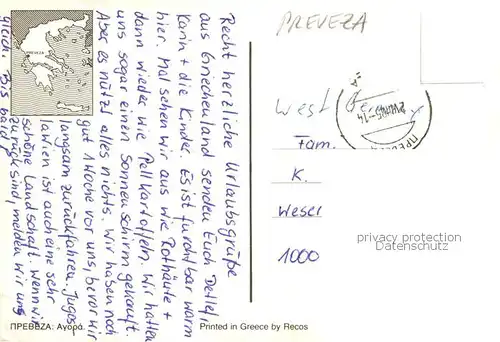 Recht herzliche Urlaubsgrüße
aus Griechenland senden Euch Detlef,
Karin + die Kinder. Es ist furchtbar warm
hier. Mal sehen wir aus wie Rothäute +
dann wieder wie Pellkartoffeln. Wir hatten
uns sogar einen Sonnenschirm gekauft.
Aber es nützt alles nichts. Wir haben noch
gut 1 Woche vor uns, bevor wir
langsam zurückfahren. Jugos-
lawien ist auch eine sehr
schöne Landschaft. Wenn wir
zurück sind, melden wir uns
gleich. Bis bald!
ΠΡΕΒΕΖΑ
PREVEZA
West Germany
Fam.
K.
Weser
1000
privacy protection
ΠΡΕΒΕΖΑ: Αγορά.
Printed in Greece by Recos